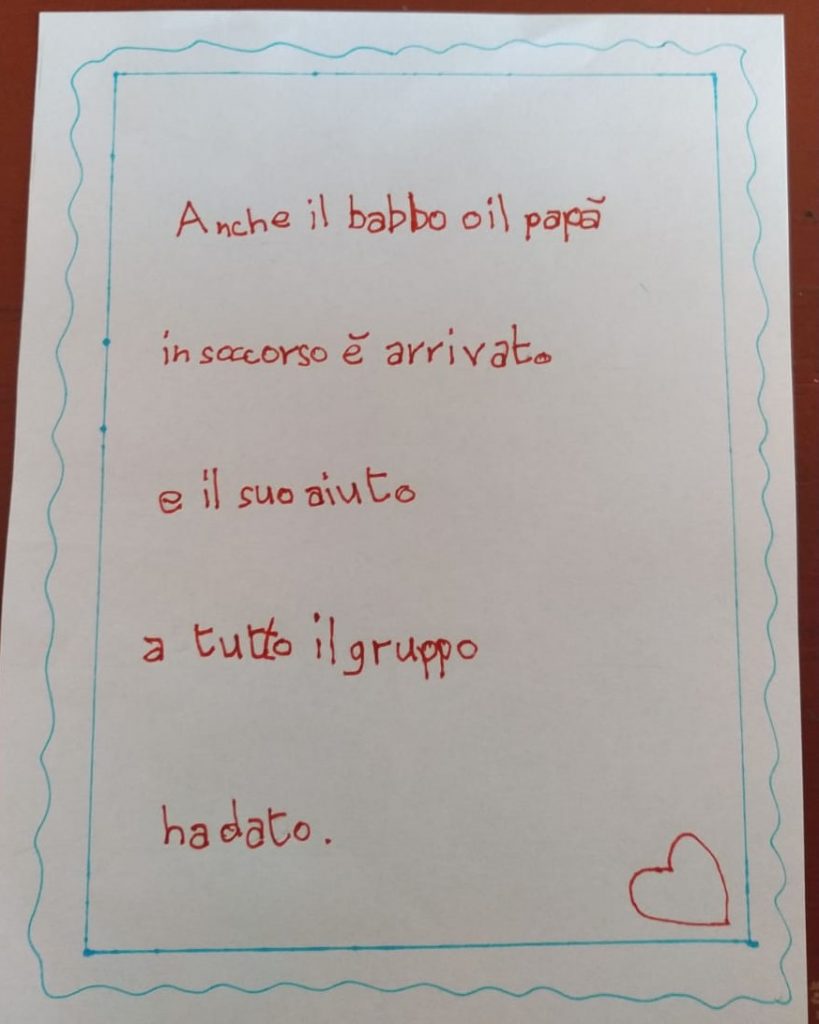 Anche il babbo o il papà
in soccorso è arrivato
e il suo aiuto
a tutto il gruppo
ha dato.